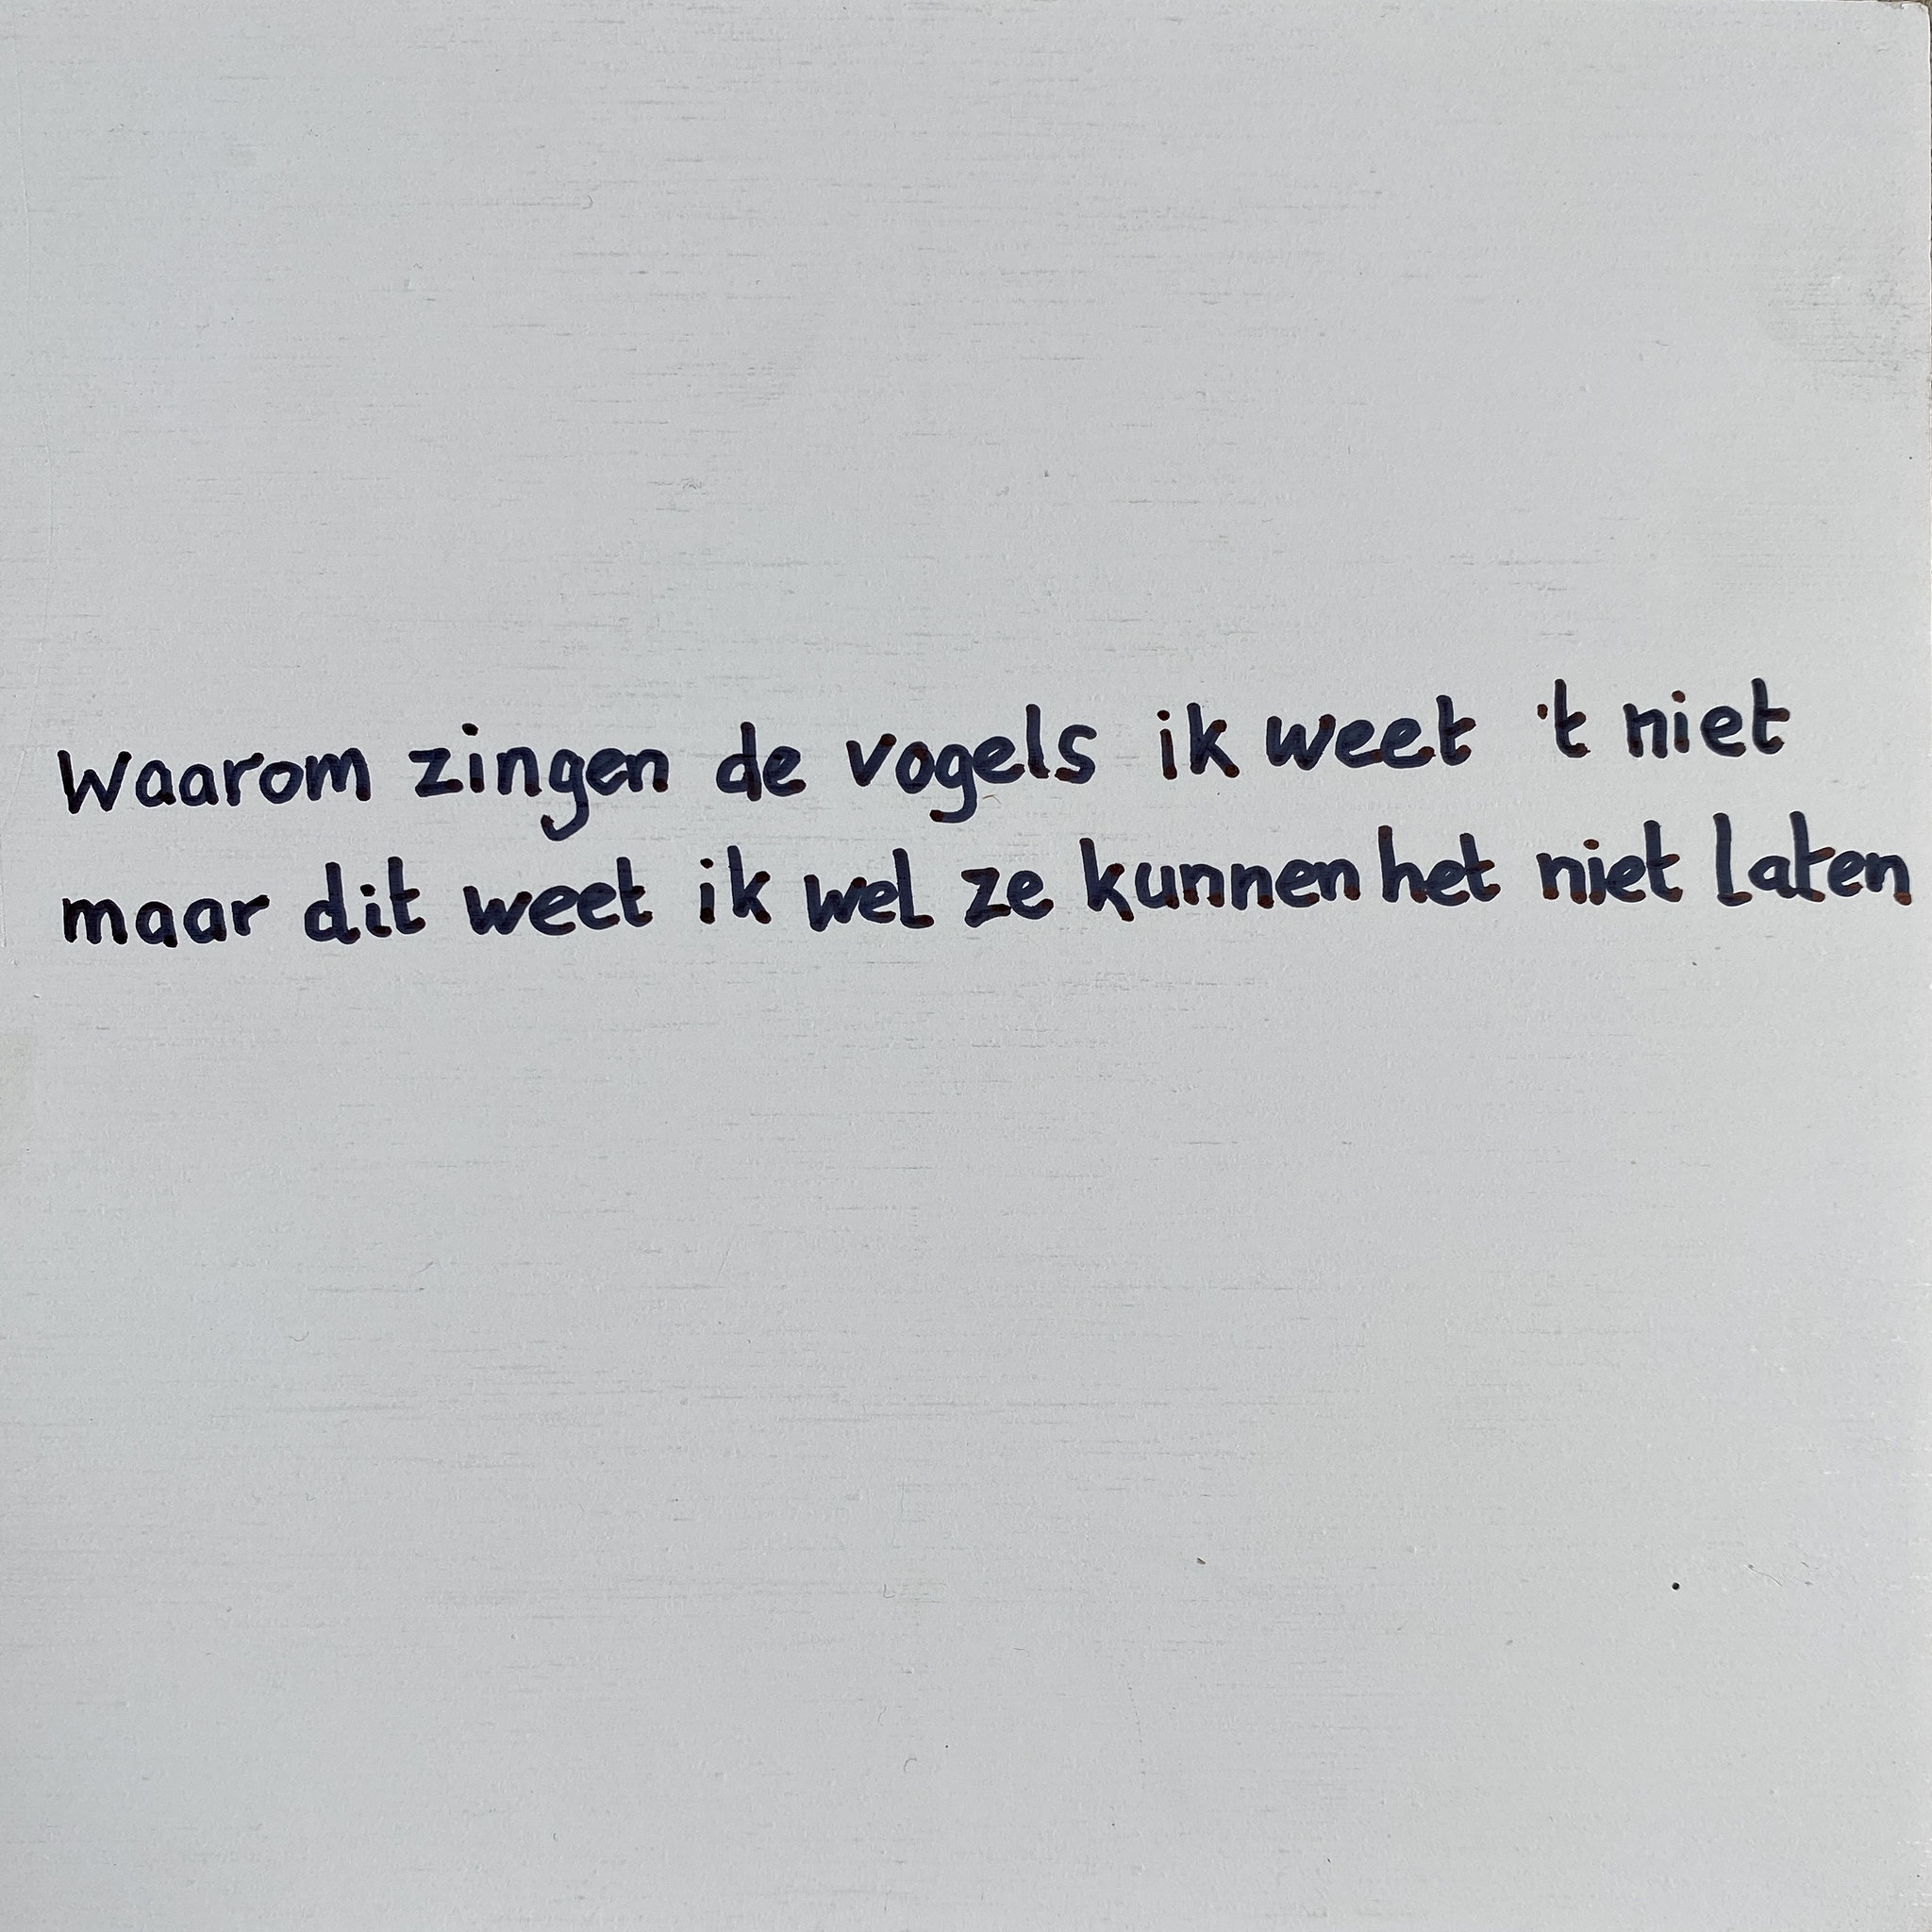 Waarom zingen de vogels ik weet 't niet
maar dit weet ik wel ze kunnen het niet laten